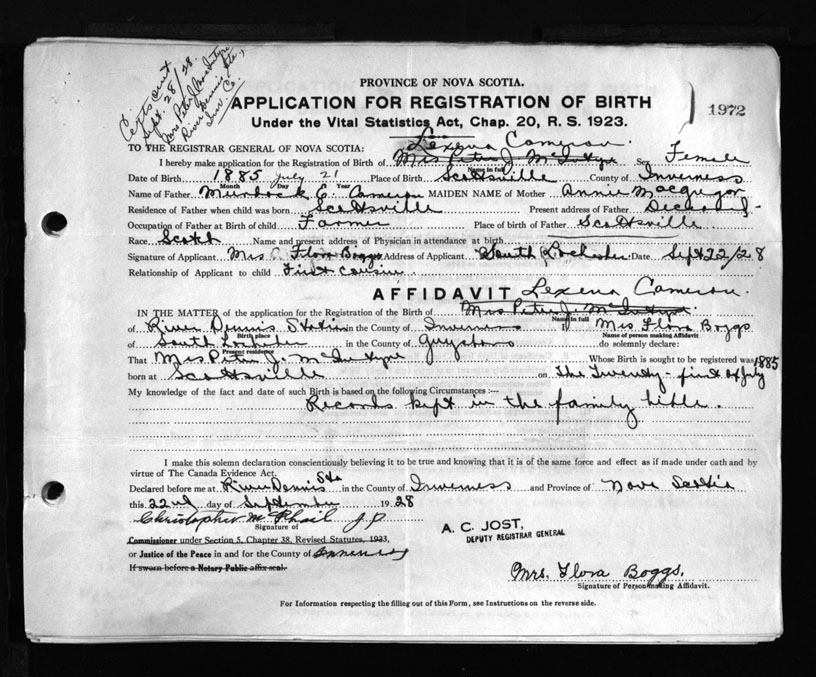 Cert sent
Sept. 28/28.
Mrs Peter J. MacIntyre
River Dennis Sta.,
Inv. Co.
PROVINCE OF NOVA SCOTIA.
APPLICATION FOR REGISTRATION OF BIRTH
1972
Under the Vital Statistics Act, Chap. 20, R. S. 1923.
Lexena Cameron.
TO THE REGISTRAR GENERAL OF NOVA SCOTIA:
I hereby make application for the Registration of Birth of Mrs Peter J. McIntyre Sex Female
Name in full
Date of Birth 1885 July 21 Place of Birth Scottsville County of Inverness
Month Day Year
Name of Father Murdock C. Cameron MAIDEN NAME of Mother Annie Macgregor
Residence of Father when child was born Scottsville Present address of Father Deceased
Occupation of Father at Birth of child Farmer Place of birth of Father Scottsville
Race Scotch Name and present address of Physician in attendance at birth
Signature of Applicant Mrs. Flora Boggs Address of Applicant South Lochester Date Sept 22/28
Relationship of Applicant to child First cousin
AFFIDAVIT Lexena Cameron.
IN THE MATTER of the application for the Registration of the Birth of Mrs Peter J. McIntyre
Name in full
of River Dennis Station in the County of Inverness I Mrs Flora Boggs
Birth place Name of person making Affidavit
of South Lochester in the County of Guysboro do solemnly declare:
Present residence
That Mrs Peter J. McIntyre Whose Birth is sought to be registered was 1885
born at Scottsville on The Twenty-first of July
My knowledge of the fact and date of such Birth is based on the following Circumstances:—
Records kept in the family bible.
I make this solemn declaration conscientiously believing it to be true and knowing that it is of the same force and effect as if made under oath and by
virtue of The Canada Evidence Act.
Declared before me at River Dennis Sta in the County of Inverness and Province of Nova Scotia
this 22nd day of September 1928
Christopher McPhail J.P.
Signature of
A. C. JOST,
DEPUTY REGISTRAR GENERAL
Commissioner under Section 5, Chapter 38, Revised Statutes, 1923,
or Justice of the Peace in and for the County of Inverness
If sworn before a Notary Public affix seal.
Mrs. Flora Boggs.
Signature of Person making Affidavit.
For Information respecting the filling out of this Form, see Instructions on the reverse side.